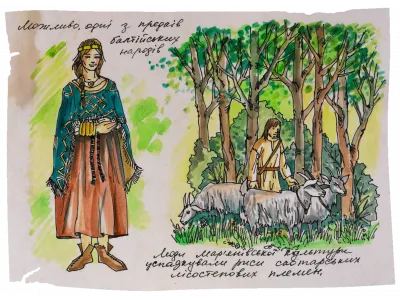 Можливо, одні з предків
балтійських
народів
Люди Мар'янівської культури
успадкували риси скотарських
лісостепових племен.